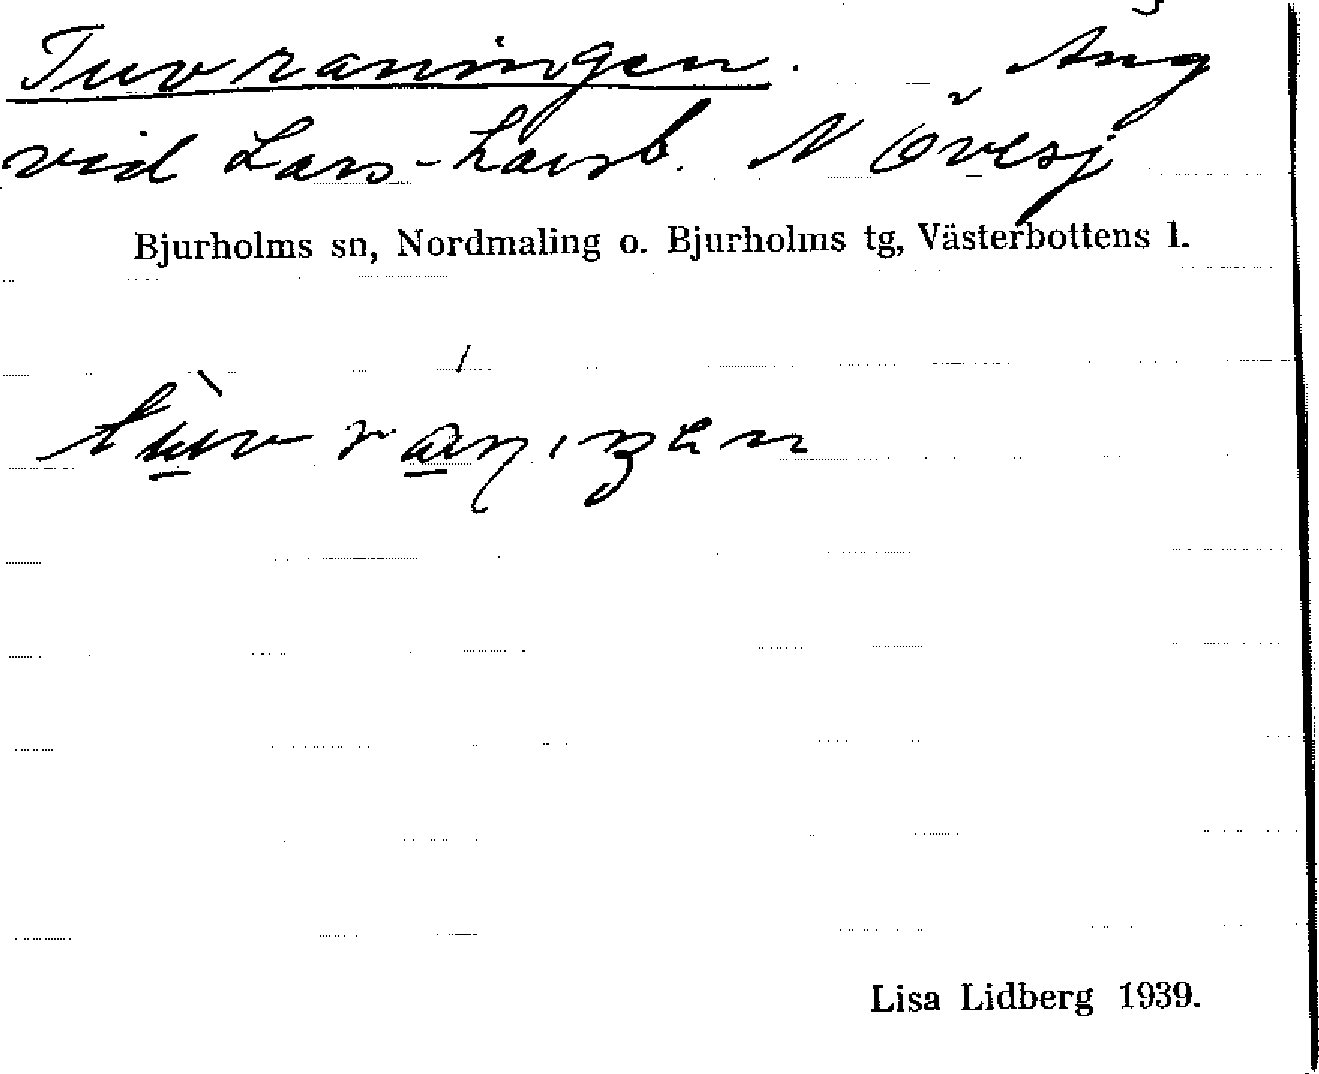 Tuvraningen. Äng
vid Lars-Larsb. N Övesj
Bjurholms sn, Nordmaling o. Bjurholms tg, Västerbottens l.
Lisa Lidberg 1939.